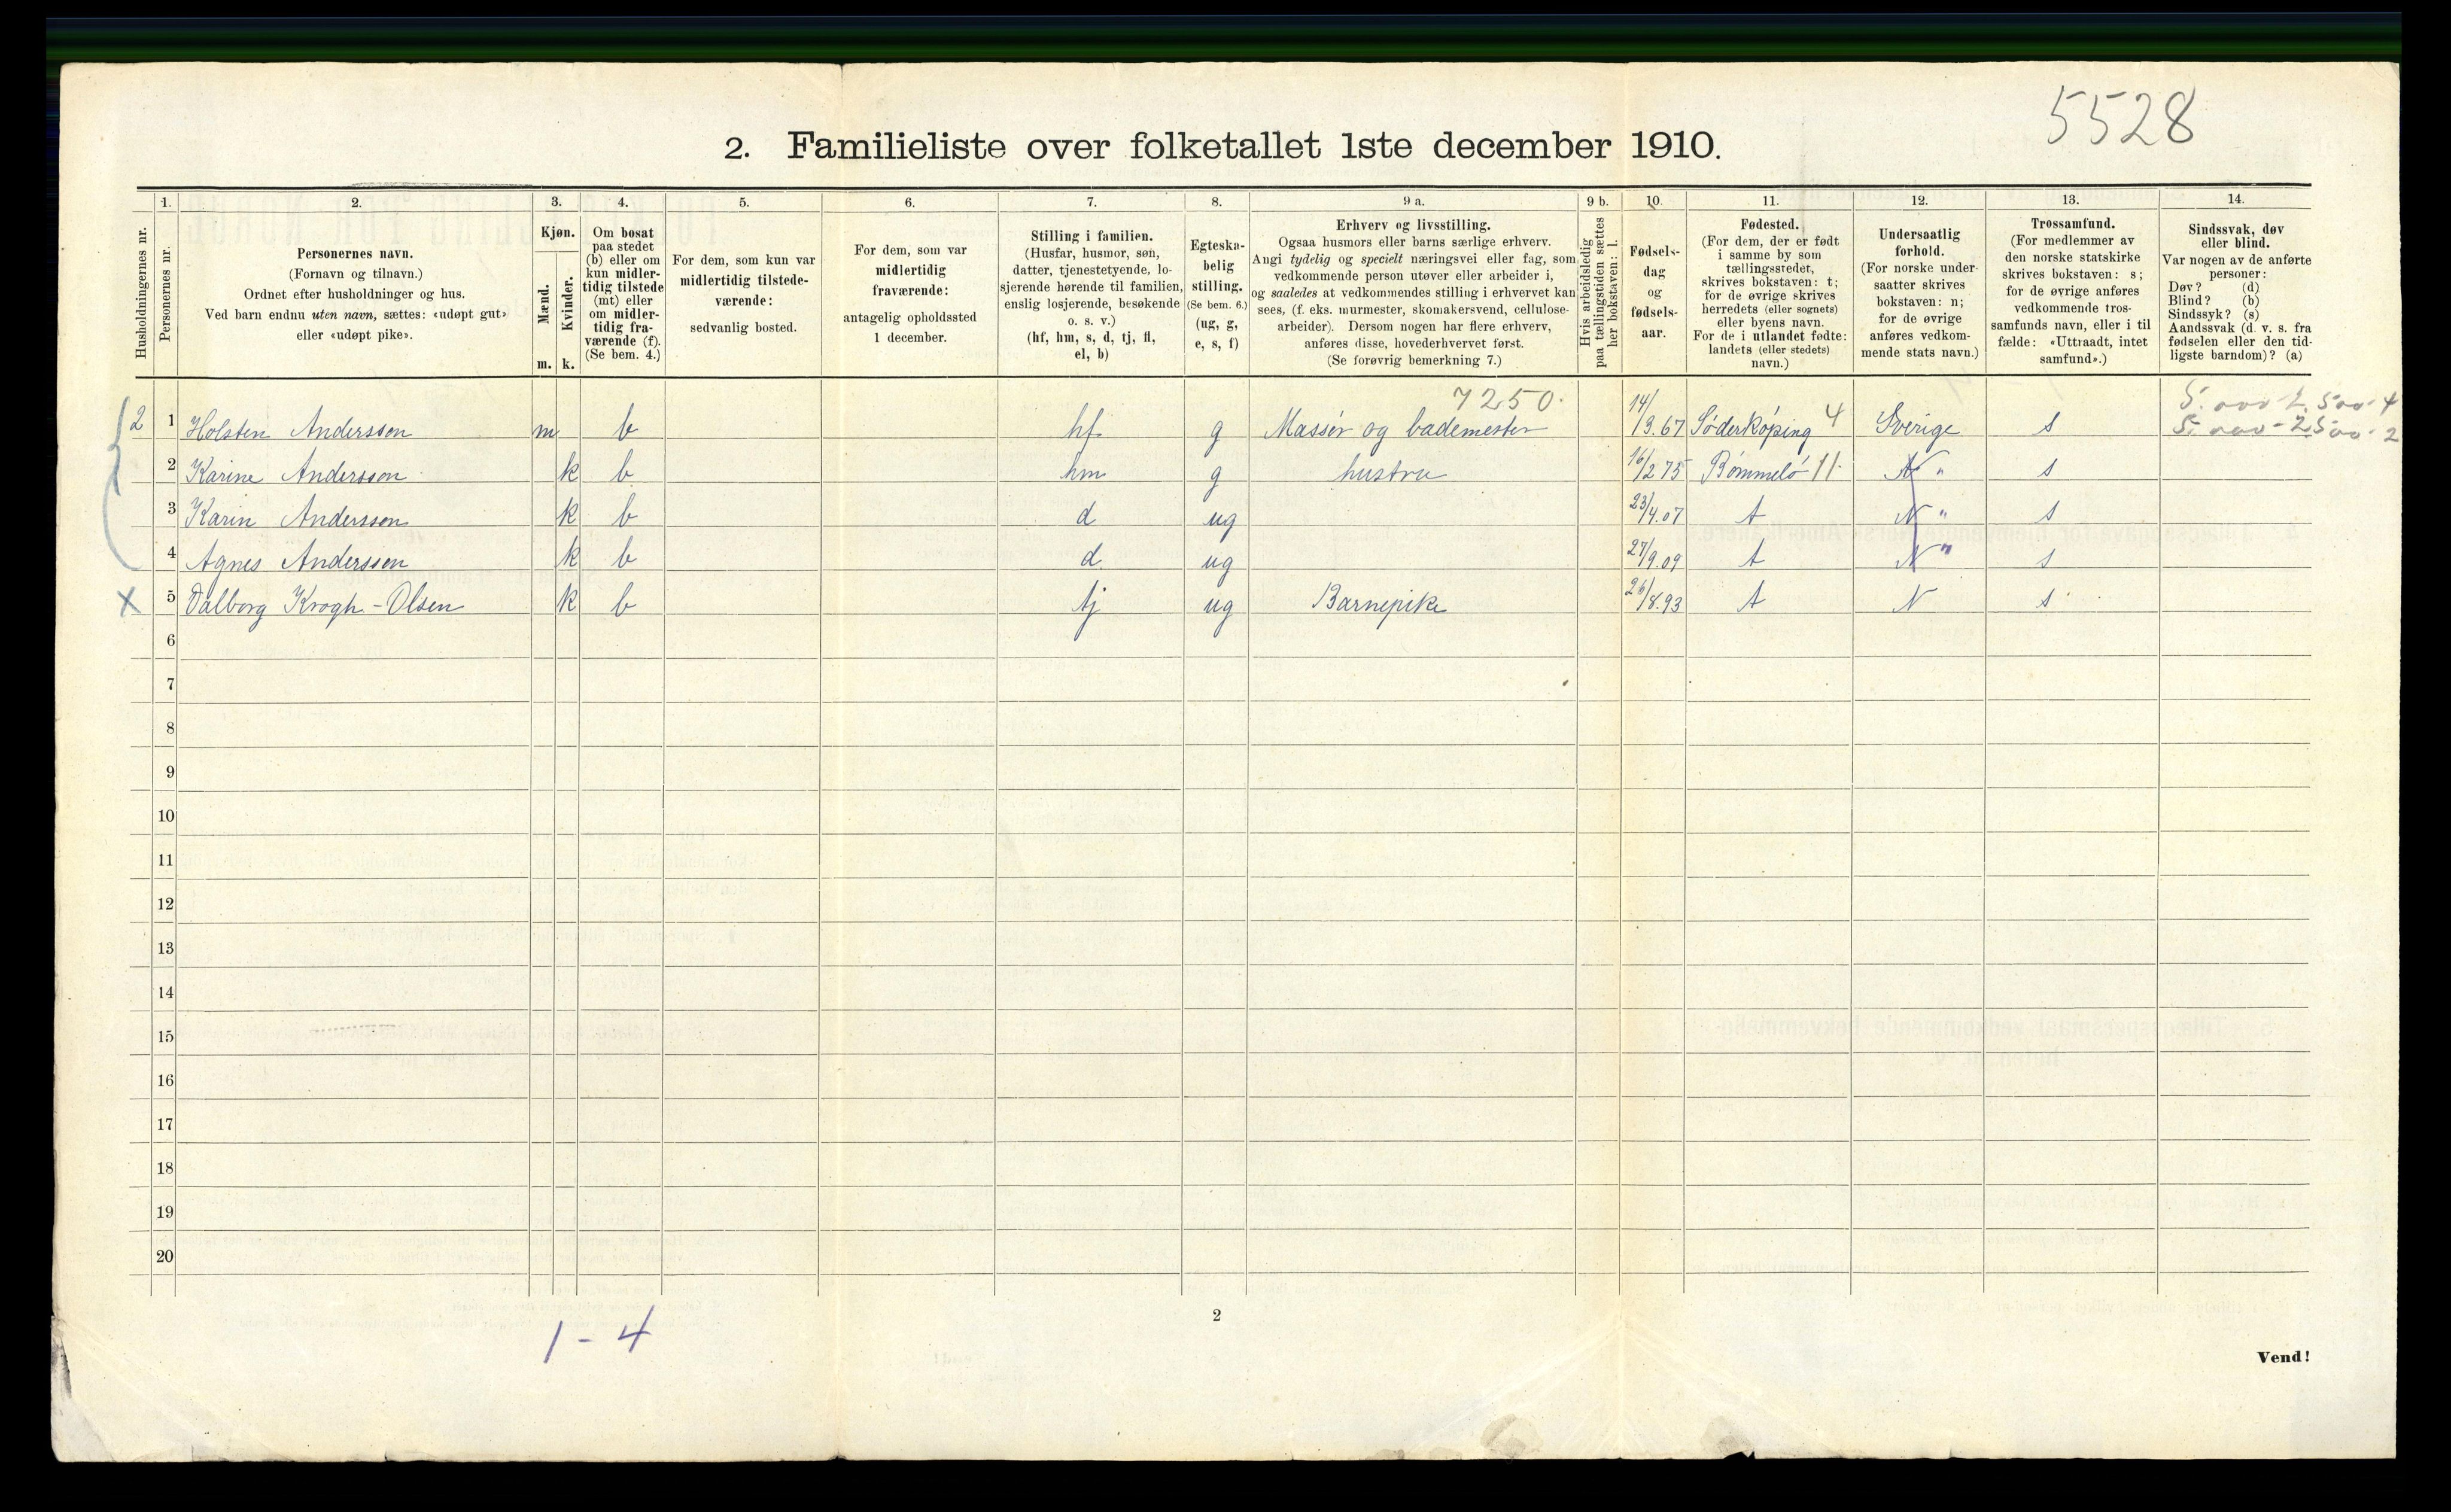 5528
2. Familieliste over folketallet 1ste december 1910.
Husholdningernes nr.
1.
Personernes nr.
2.
Personernes navn.
(Fornavn og tilnavn.)
Ordnet efter husholdninger og hus.
Ved barn endnu uten navn, sættes: «udøpt gut»
eller «udøpt pike».
3.
Kjøn.
Mænd.
Kvinder.
m. k.
4.
Om bosat
paa stedet
(b) eller om
kun midler-
tidig tilstede
(mt) eller
om midler-
tidig fra-
værende (f).
(Se bem. 4.)
5.
For dem, som kun var
midlertidig tilstede-
værende:
sedvanlig bosted.
6.
For dem, som var
midlertidig
fraværende:
antagelig opholdssted
1 december.
7.
Stilling i familien.
(Husfar, husmor, søn,
datter, tjenestetyende, lo-
sjerende hørende til familien,
enslig losjerende, besøkende
o. s. v.)
(hf, hm, s, d, tj, fl,
el, b)
8.
Egteska-
belig
stilling.
(Se bem. 6.)
(ug, g,
e, s, f)
9 a.
Erhverv og livsstilling.
Ogsaa husmors eller barns særlige erhverv.
Angi tydelig og specielt næringsvei eller fag, som
vedkommende person utøver eller arbeider i,
og saaledes at vedkommendes stilling i erhvervet kan
sees, (f. eks. murmester, skomakersvend, cellulose-
arbeider). Dersom nogen har flere erhverv,
anføres disse, hovederhvervet først.
(Se forøvrig bemerkning 7.)
9 b.
Hvis arbeidsledig
paa tællingstiden sættes
her bokstaven: l.
10.
Fødsels-
dag
og
fødsels-
aar.
11.
Fødested.
(For dem, der er født
i samme by som
tællingsstedet,
skrives bokstaven: t;
for de øvrige skrives
herredets (eller sognets)
eller byens navn.
For de i utlandet fødte:
landets (eller stedets)
navn.)
12.
Undersaatlig
forhold.
(For norske under-
saatter skrives
bokstaven: n;
for de øvrige
anføres vedkom-
mende stats navn.)
13.
Trossamfund.
(For medlemmer av
den norske statskirke
skrives bokstaven: s;
for de øvrige anføres
vedkommende tros-
samfunds navn, eller i til
fælde: «Uttraadt, intet
samfund».)
14.
Sindssvak, døv
eller blind.
Var nogen av de anførte
personer:
Døv? (d)
Blind? (b)
Sindssyk? (s)
Aandssvak (d. v. s. fra
fødselen eller den tid-
ligste barndom)? (a)
7250.
2 1 Holsten Andersson m b hf g Massør og bademester 14/3.67 Søderkøping 4 Sverige s
2 Karine Andersson k b hm g hustru 16/2 75 Bømmelø 11 N " s
3 Karin Andersson k b d ug 23/4.07 t N " s
4 Agnes Andersson k b d ug 27/9.09 t N " s
x 5 Valborg Krogh-Olsen k b tj ug Barnepike 26/8.93 t N s
6
7
8
9
10
11
12
13
14
15
16
17
18
19
20
1 - 4
2
Vend!